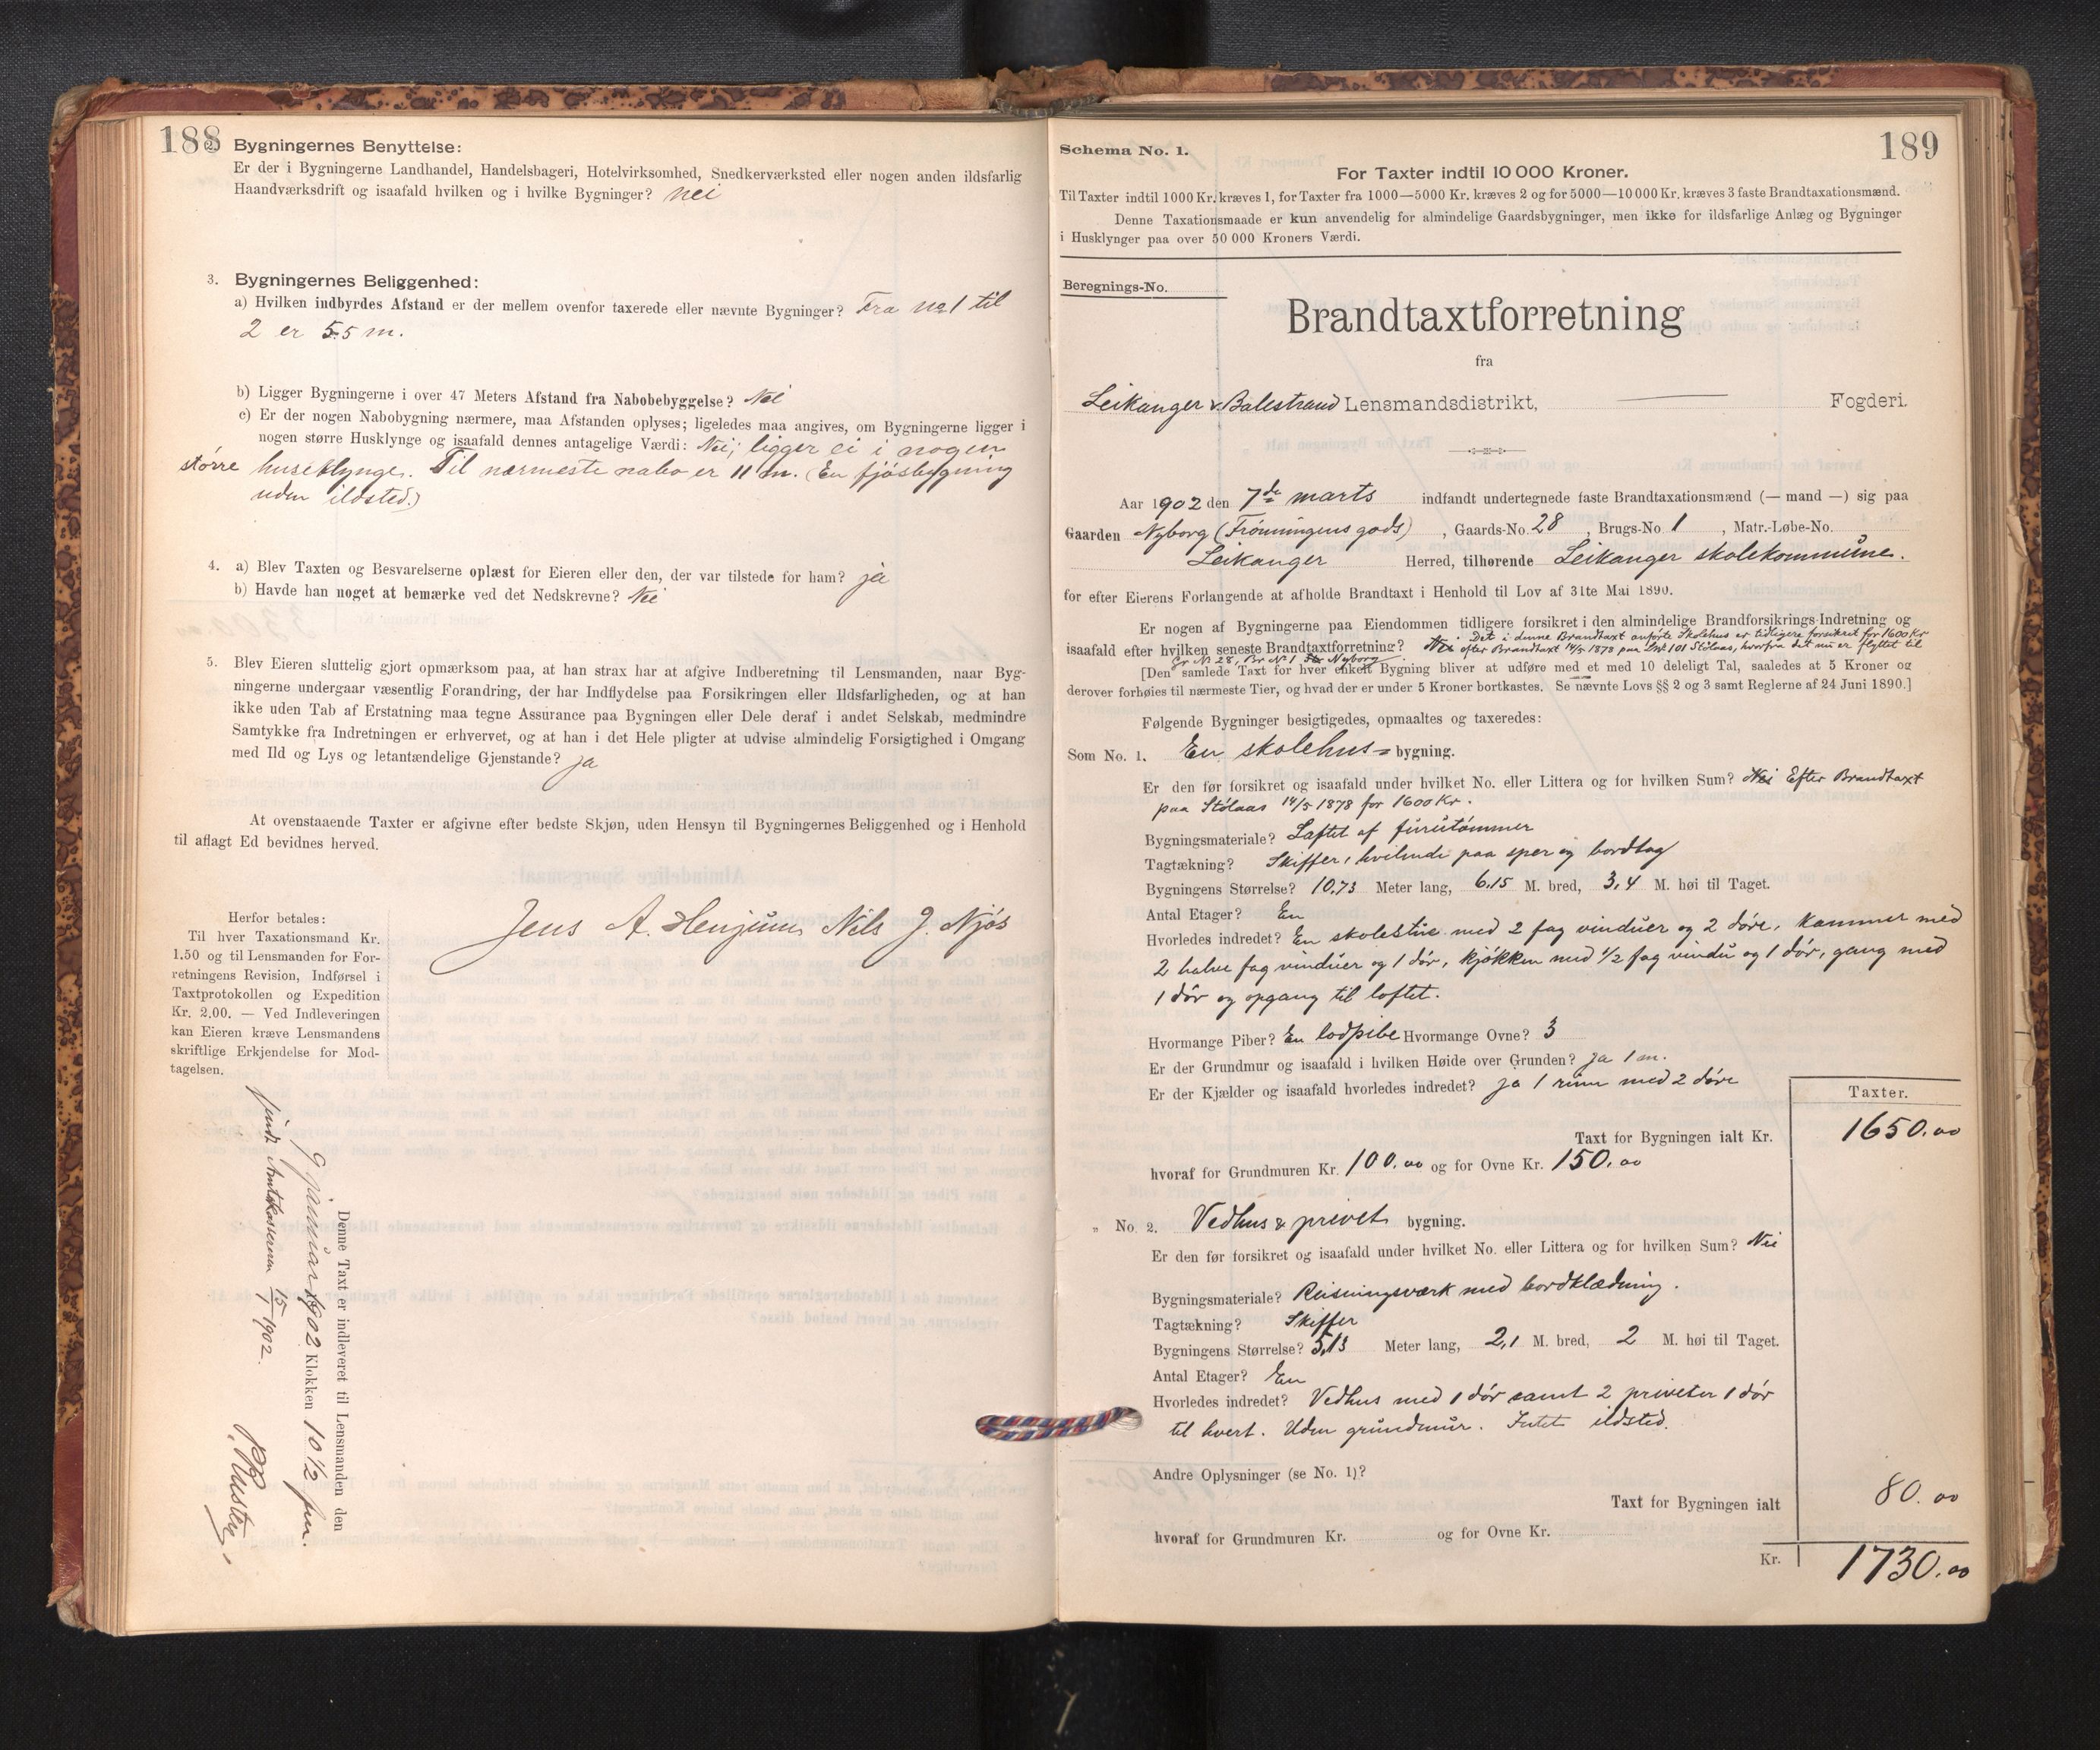 188
2. Bygningernes Benyttelse:
Er der i Bygningerne Landhandel, Handelsbageri, Hotelvirksomhed, Snedkerværksted eller nogen anden ildsfarlig
Haandværksdrift og isaafald hvilken og i hvilke Bygninger? nei
3. Bygningernes Beliggenhed:
a) Hvilken indbyrdes Afstand er der mellem ovenfor taxerede eller nævnte Bygninger? Fra No 1 til
2 er 5.5 m.
b) Ligger Bygningerne i over 47 Meters Afstand fra Nabobebyggelse? Nei
c) Er der nogen Nabobygning nærmere, maa Afstanden oplyses; ligeledes maa angives, om Bygningerne ligger i
nogen større Husklynge og isaafald dennes antagelige Værdi: Nei; ligger ei i nogen
större huseklynge. Til nærmeste nabo er 11 m. (En fjösbygning
uden ildsted.)
4. a) Blev Taxten og Besvarelserne oplæst for Eieren eller den, der var tilstede for ham? ja
b) Havde han noget at bemærke ved det Nedskrevne? Nei
5. Blev Eieren sluttelig gjort opmærksom paa, at han strax har at afgive Indberetning til Lensmanden, naar Byg-
ningerne undergaar væsentlig Forandring, der har Indflydelse paa Forsikringen eller Ildsfarligheden, og at han
ikke uden Tab af Erstatning maa tegne Assurance paa Bygningen eller Dele deraf i andet Selskab, medmindre
Samtykke fra Indretningen er erhvervet, og at han i det Hele pligter at udvise almindelig Forsigtighed i Omgang
med Ild og Lys og letantændelige Gjenstande? ja
At ovenstaaende Taxter er afgivne efter bedste Skjøn, uden Hensyn til Bygningernes Beliggenhed og i Henhold
til aflagt Ed bevidnes herved.
Jens A. Henjum Nils J. Njös
Herfor betales:
Til hver Taxationsmand Kr.
1.50 og til Lensmanden for For-
retningens Revision, Indførsel i
Taxtprotokollen og Expedition
Kr. 2.00. — Ved Indleveringen
kan Eieren kræve Lensmandens
skriftlige Erkjendelse for Mod-
tagelsen.
Denne Taxt er indleveret til Lensmanden den
9 januar 1902 Klokken 10 1/2 fm.
sendt Amtskasseren 15/7 1902.
189
Schema No. 1.
For Taxter indtil 10 000 Kroner.
Til Taxter indtil 1000 Kr. kræves 1, for Taxter fra 1000—5000 Kr. kræves 2 og for 5000—10 000 Kr. kræves 3 faste Brandtaxationsmænd.
Denne Taxationsmaade er kun anvendelig for almindelige Gaardsbygninger, men ikke for ildsfarlige Anlæg og Bygninger
i Husklynger paa over 50 000 Kroners Værdi.
Beregnings-No.
Brandtaxtforretning
fra
Leikanger & Balestrand Lensmandsdistrikt, Fogderi.
Aar 1902 den 7de marts indfandt undertegnede faste Brandtaxationsmænd (— mand —) sig paa
Gaarden Nyborg (Frönningens gods), Gaards-No. 28, Brugs-No 1, Matr.-Løbe-No.
Leikanger Herred, tilhørende Leikanger skolekommune.
for efter Eierens Forlangende at afholde Brandtaxt i Henhold til Lov af 31te Mai 1890.
Er nogen af Bygningerne paa Eiendommen tidligere forsikret i den almindelige Brandforsikrings-Indretning og
isaafald efter hvilken seneste Brandtaxtforretning? Nei Det i denne Brandtaxt anförte Skolehus er tidligere forsikret for 1600 Kr
efter Brandtaxt 14/5 1878 paa LNr 101 Stölaas, hvorfra det nu er flyttet til
Gr No 28, Br No 1 Nyborg
[Den samlede Taxt for hver enkelt Bygning bliver at udføre med et med 10 deleligt Tal, saaledes at 5 Kroner og
derover forhøies til nærmeste Tier, og hvad der er under 5 Kroner bortkastes. Se nævnte Lovs §§ 2 og 3 samt Reglerne af 24 Juni 1890.]
Følgende Bygninger besigtigedes, opmaaltes og taxeredes:
Som No. 1. En skolehus= bygning.
Er den før forsikret og isaafald under hvilket No. eller Littera og for hvilken Sum? Nei Efter Brandtaxt
paa Stölaas 14/5 1878 for 1600 Kr.
Bygningsmateriale? Laftet af furutömmer
Tagtækning? Skiffer, hvilende paa sper og bordtag
Bygningens Størrelse? 10,73 Meter lang, 6,15 M. bred, 3,4 M. høi til Taget.
Antal Etager? En
Hvorledes indredet? En skolestue med 2 fag vinduer og 2 döre, Kammer med
2 halve fag vinduer og 1 dör, kjökken med 1/2 fag vindu og 1 dör, gang med
1 dör og opgang til loftet.
Hvormange Piber? En lodpibe Hvormange Ovne? 3
Er der Grundmur og isaafald i hvilken Høide over Grunden? ja 1 m.
Er der Kjælder og isaafald hvorledes indredet? ja 1 rum med 2 döre
Taxter.
Taxt for Bygningen ialt Kr. 1650.00
hvoraf for Grundmuren Kr. 100.00 og for Ovne Kr. 150.00
" No. 2. Vedhus & privet bygning.
Er den før forsikret og isaafald under hvilket No. eller Littera og for hvilken Sum? Nei
Bygningsmateriale? Reisningsværk med bordklædning.
Tagtækning? Skiffer
Bygningens Størrelse? 5,13 Meter lang, 2,1 M. bred, 2 M. høi til Taget.
Antal Etager? En
Hvorledes indredet? Vedhus med 1 dör samt 2 priveter 1 dör
til hvert. Uden grundmur. Intet ildsted.
Andre Oplysninger (se No. 1)?
Taxt for Bygningen ialt 80.00
hvoraf for Grundmuren Kr. og for Ovne Kr.
Kr. 1730.00